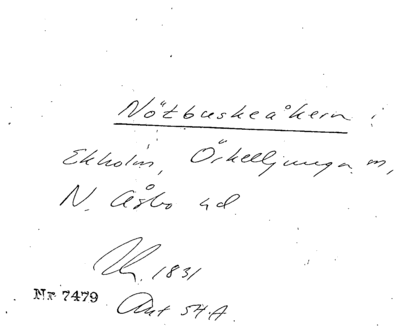 Nötbuskeåkern
Ekholm, Örkelljunga sn,
N. Åsbo hd
1831
Nr 7479
Ant 54 A